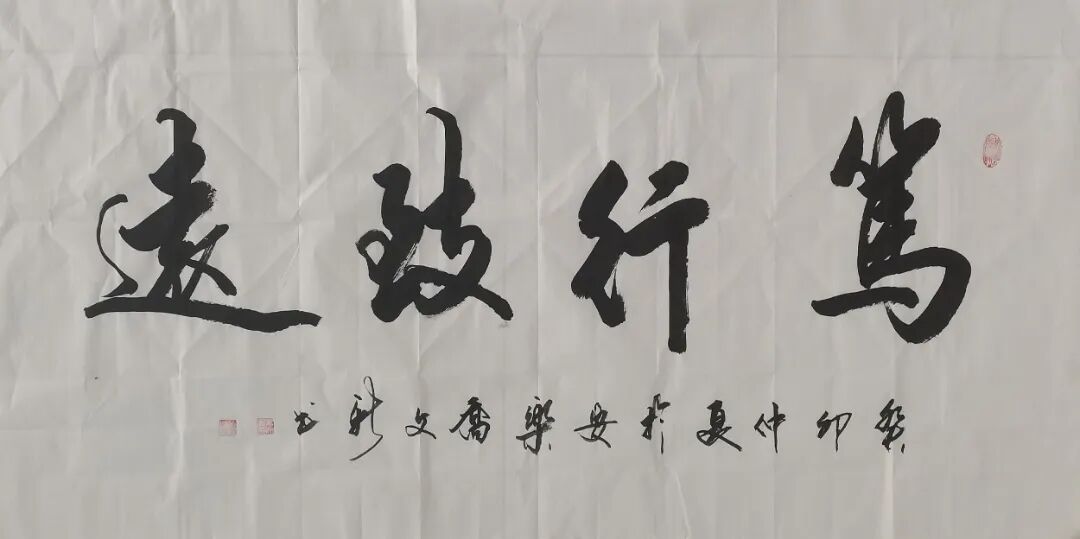 篤行致遠
癸卯仲夏於安樂喬文新书